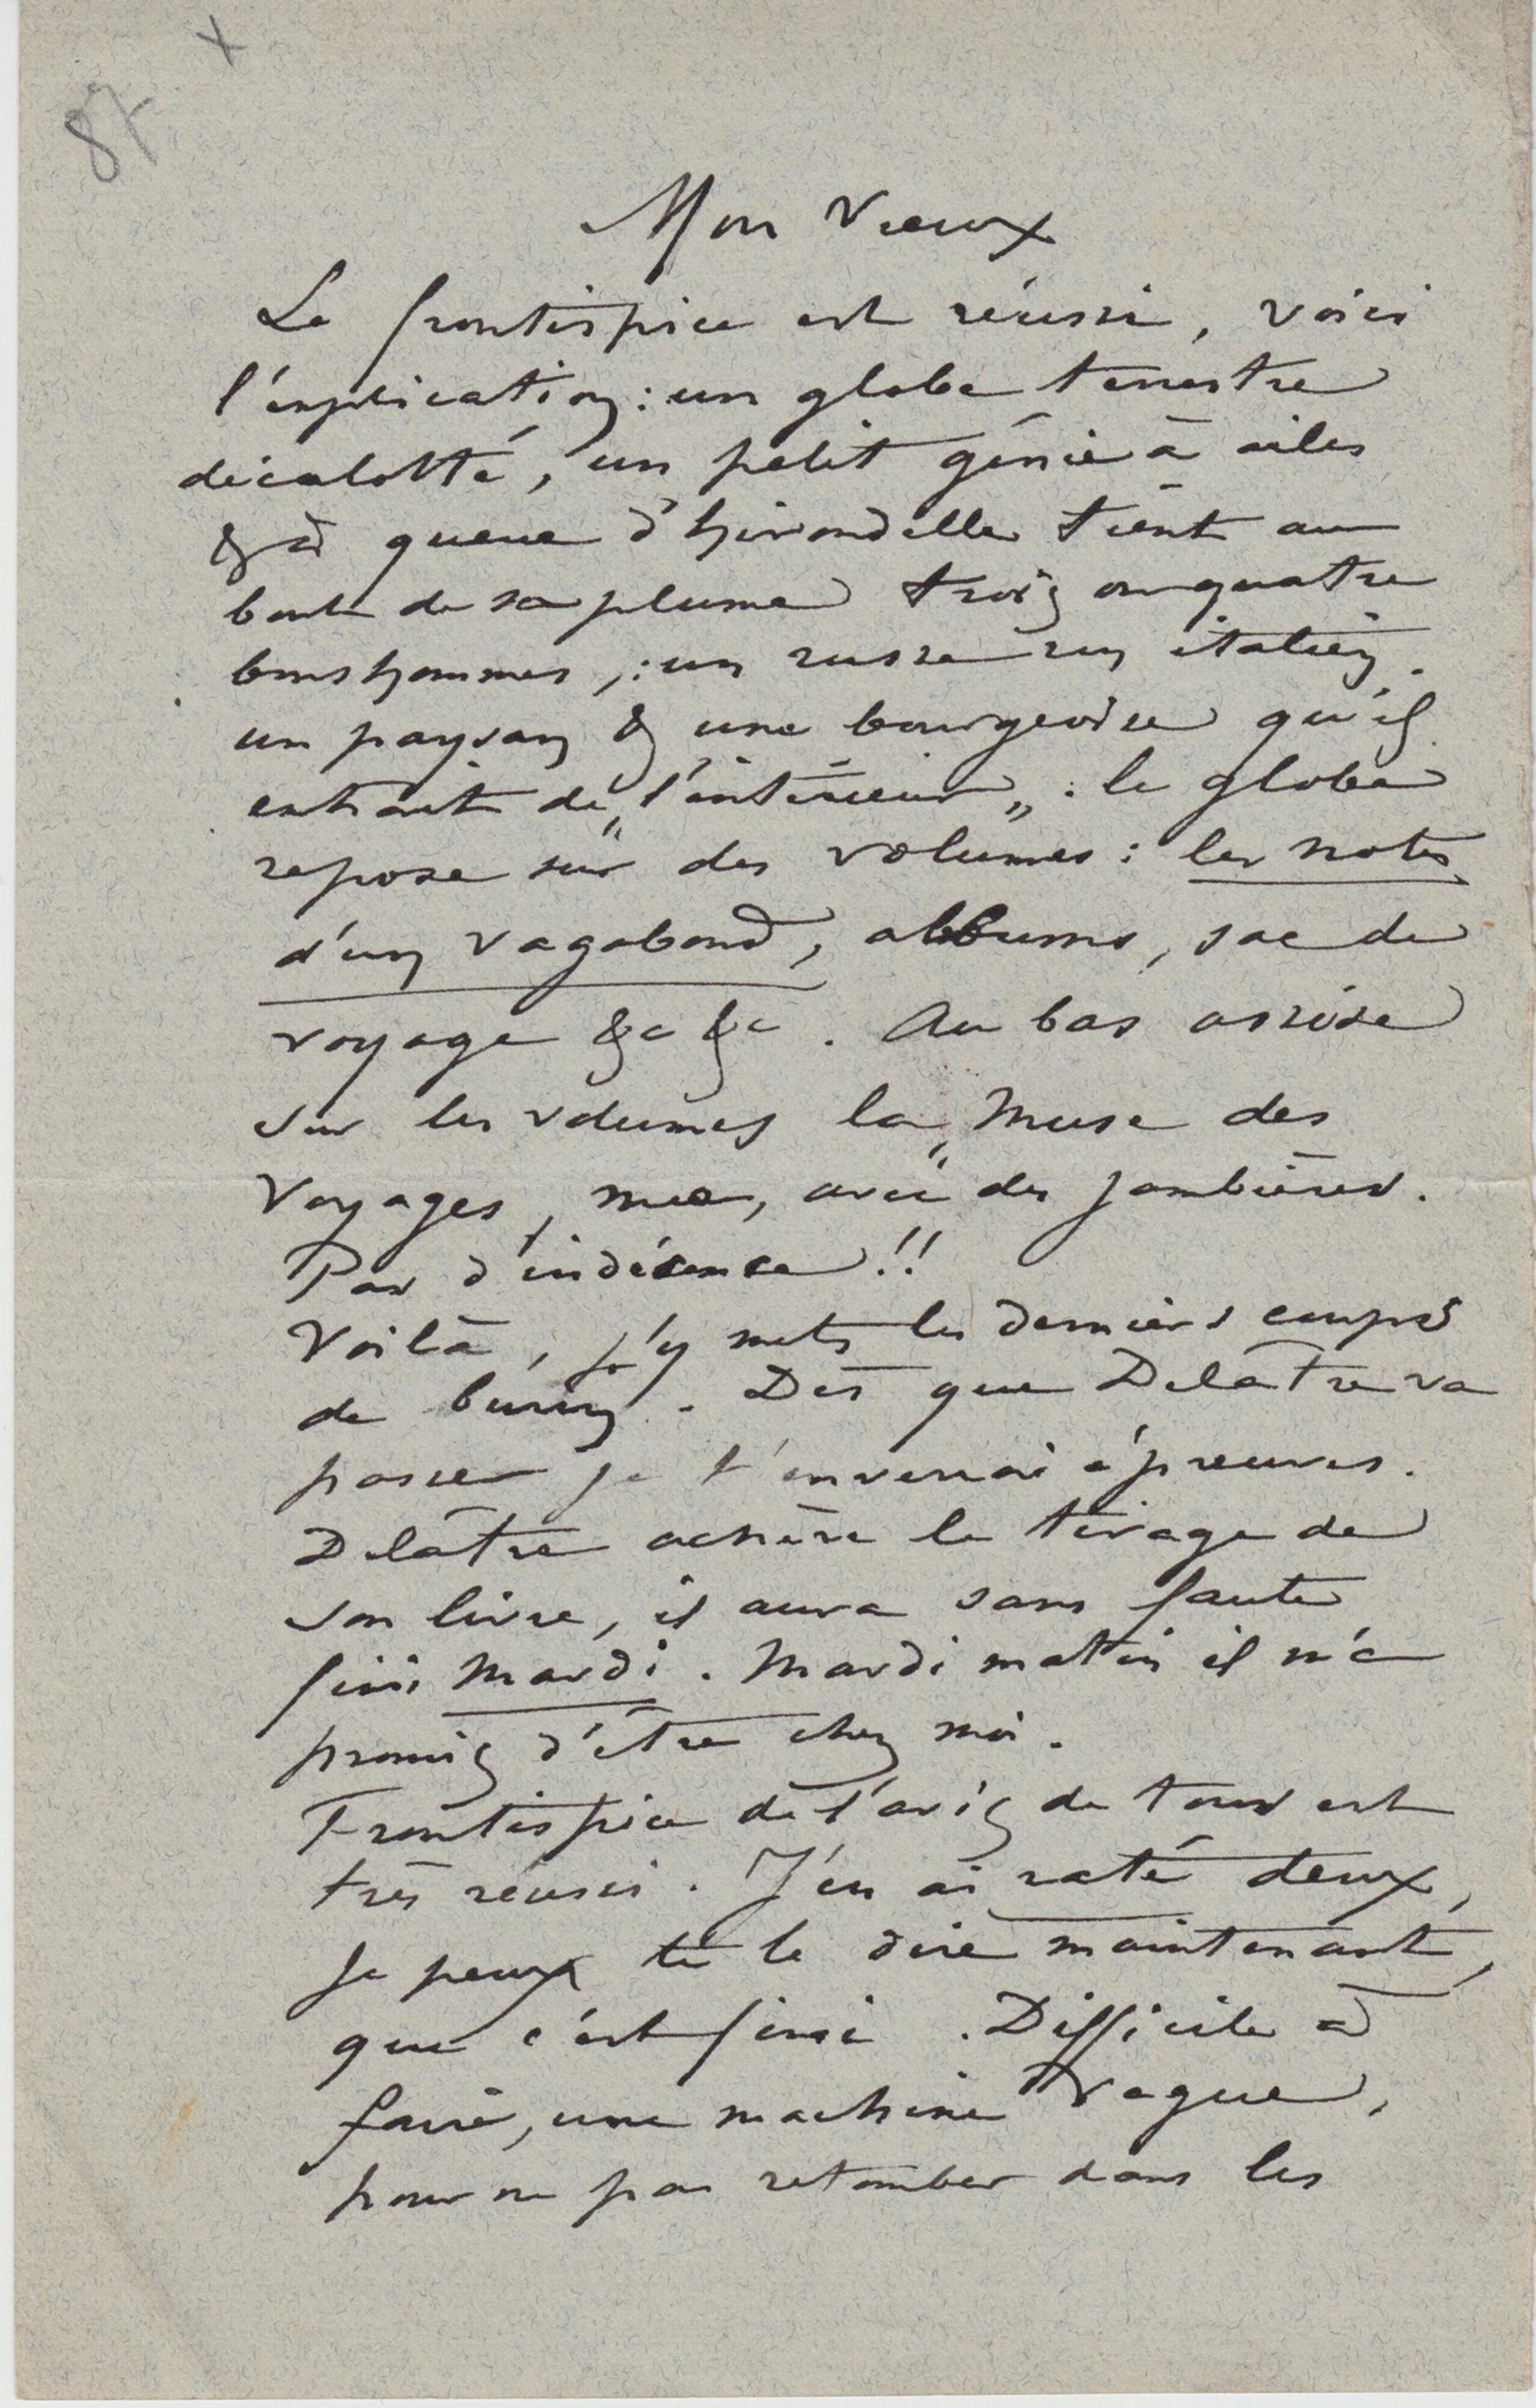 +
87
Mon Vieux
Le frontispice est réussi, voici
l'explication : un globe terrestre
décalotté, un petit génie à ailes
& à queue d'hirondelle tient au
bout de sa plume trois ou quatre
bonshommes, : un russe un italien.
un paysan & une bourgeoise qu'il
extrait de „l'intérieur„ : le globe
repose sur des volumes : les notes
d'un vagabond, albums, sac de
voyage &c &c . Au bas assise
sur les volumes la „Muse des
Voyages, nue, avec des jambières.
Pas d'indécence !!
Voilà, j'y mets les derniers coups
de burin . Dès que Delâtre va
passer je t'enverrai épreuves.
Delâtre achève le tirage de
son livre, il aura sans faute
fini Mardi . Mardi matin il m'a
promis d'être chez moi .
Frontispice de l'avis de tous est
très réussi . J'en ai raté deux,
je peux te le dire maintenant,
que c'est fini . Difficile à
faire, une machine vague,
pour ne pas retomber dans les